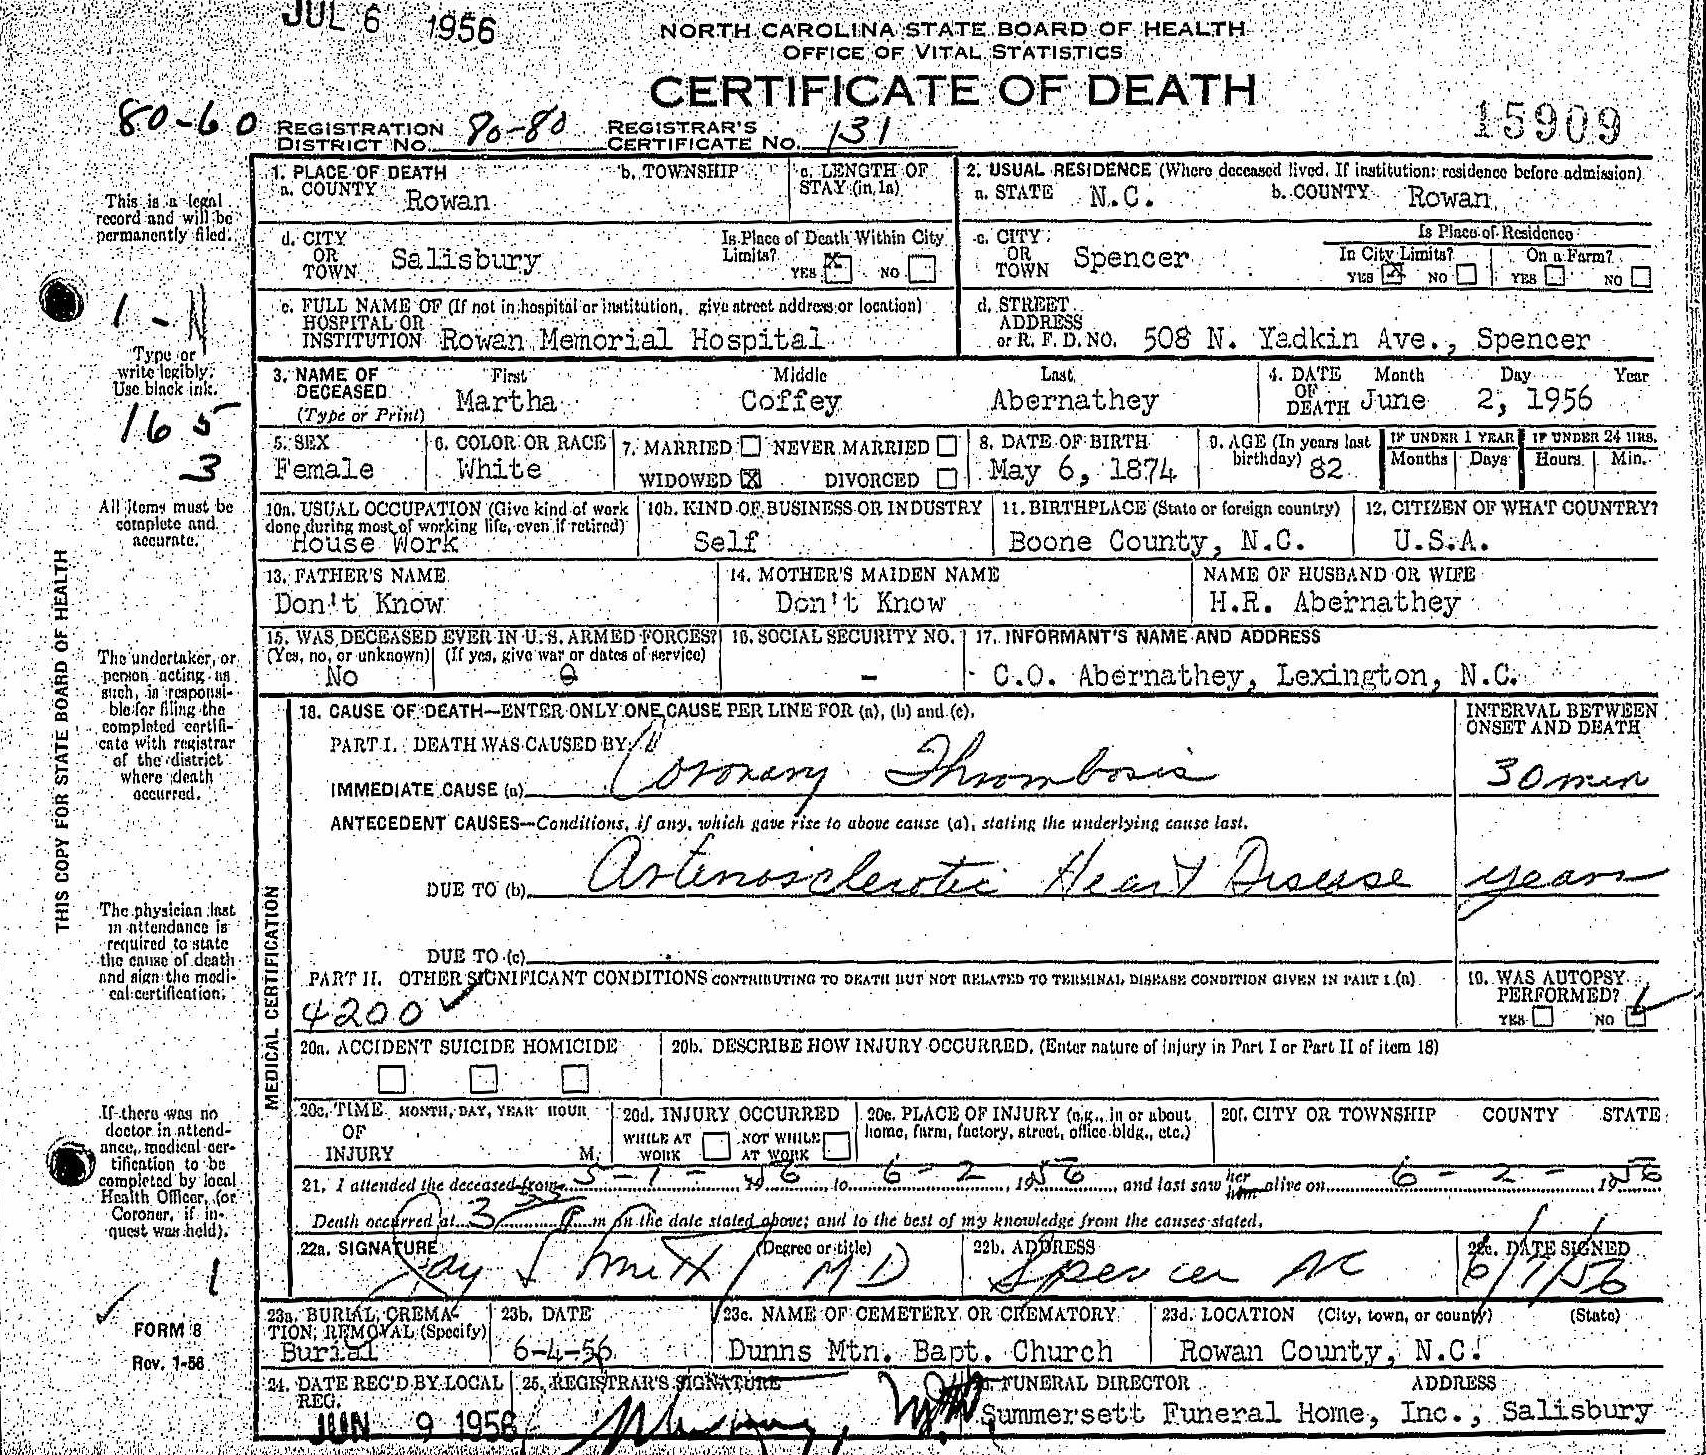 JUL 6 1956
NORTH CAROLINA STATE BOARD OF HEALTH
OFFICE OF VITAL STATISTICS
CERTIFICATE OF DEATH
15909
80-60 REGISTRATION DISTRICT NO. 80-80 REGISTRAR'S CERTIFICATE NO. 131
This is a legal record and will be permanently filed.
1. PLACE OF DEATH
a. COUNTY Rowan
b. TOWNSHIP
c. LENGTH OF STAY (in 1a)
2. USUAL RESIDENCE (Where deceased lived. If institution: residence before admission)
a. STATE N.C. b. COUNTY Rowan
d. CITY OR TOWN Salisbury
Is Place of Death Within City Limits? YES X NO
c. CITY OR TOWN Spencer
Is Place of Residence
In City Limits? YES X NO
On a Farm? YES NO
e. FULL NAME OF (If not in hospital or institution, give street address or location)
HOSPITAL OR INSTITUTION Rowan Memorial Hospital
d. STREET ADDRESS or R. F. D. NO. 508 N. Yadkin Ave., Spencer
1 - N
Type or write legibly. Use black ink.
165
3
3. NAME OF DECEASED (Type or Print)
First Martha
Middle Coffey
Last Abernathey
4. DATE OF DEATH Month Day Year
June 2, 1956
5. SEX Female
6. COLOR OR RACE White
7. MARRIED NEVER MARRIED
WIDOWED X DIVORCED
8. DATE OF BIRTH May 6, 1874
9. AGE (In years last birthday) 82
IF UNDER 1 YEAR Months Days
IF UNDER 24 HRS. Hours Min.
All items must be complete and accurate.
10a. USUAL OCCUPATION (Give kind of work done during most of working life, even if retired)
House Work
10b. KIND OF BUSINESS OR INDUSTRY
Self
11. BIRTHPLACE (State or foreign country)
Boone County, N.C.
12. CITIZEN OF WHAT COUNTRY?
U.S.A.
13. FATHER'S NAME
Don't Know
14. MOTHER'S MAIDEN NAME
Don't Know
NAME OF HUSBAND OR WIFE
H.R. Abernathey
15. WAS DECEASED EVER IN U. S. ARMED FORCES?
(Yes, no, or unknown) (If yes, give war or dates of service)
No 0
16. SOCIAL SECURITY NO.
-
17. INFORMANT'S NAME AND ADDRESS
C.O. Abernathey, Lexington, N.C.
THIS COPY FOR STATE BOARD OF HEALTH
The undertaker, or person acting as such, is responsible for filing the completed certificate with registrar of the district where death occurred.
MEDICAL CERTIFICATION
18. CAUSE OF DEATH—ENTER ONLY ONE CAUSE PER LINE FOR (a), (b) and (c).
INTERVAL BETWEEN ONSET AND DEATH
PART I. DEATH WAS CAUSED BY:
IMMEDIATE CAUSE (a) Coronary Thrombosis 30 min
ANTECEDENT CAUSES—Conditions, if any, which gave rise to above cause (a), stating the underlying cause last.
DUE TO (b) Arteriosclerotic Heart Disease years
The physician last in attendance is required to state the cause of death and sign the medical certification.
DUE TO (c)
PART II. OTHER SIGNIFICANT CONDITIONS CONTRIBUTING TO DEATH BUT NOT RELATED TO TERMINAL DISEASE CONDITION GIVEN IN PART I (a)
4200
19. WAS AUTOPSY PERFORMED?
YES NO
20a. ACCIDENT SUICIDE HOMICIDE
20b. DESCRIBE HOW INJURY OCCURRED. (Enter nature of injury in Part I or Part II of item 18)
If there was no doctor in attendance, medical certification to be completed by local Health Officer, (or Coroner, if inquest was held).
20c. TIME OF INJURY MONTH, DAY, YEAR HOUR M.
20d. INJURY OCCURRED
WHILE AT WORK NOT WHILE AT WORK
20e. PLACE OF INJURY (e.g., in or about home, farm, factory, street, office bldg., etc.)
20f. CITY OR TOWNSHIP COUNTY STATE
21. I attended the deceased from 5-1- 1956, to 6-2 1956, and last saw her him alive on 6-2- 1956
Death occurred at 3 P m on the date stated above; and to the best of my knowledge from the causes stated.
22a. SIGNATURE (Degree or title)
Smith MD
22b. ADDRESS
Spencer NC
22c. DATE SIGNED
6/7/56
1
FORM 8
Rev. 1-56
23a. BURIAL, CREMATION, REMOVAL (Specify)
Burial
23b. DATE
6-4-56
23c. NAME OF CEMETERY OR CREMATORY
Dunns Mtn. Bapt. Church
23d. LOCATION (City, town, or county) (State)
Rowan County, N.C.
24. DATE REC'D BY LOCAL REG.
JUN 9 1956
25. REGISTRAR'S SIGNATURE
FUNERAL DIRECTOR ADDRESS
Summersett Funeral Home, Inc., Salisbury